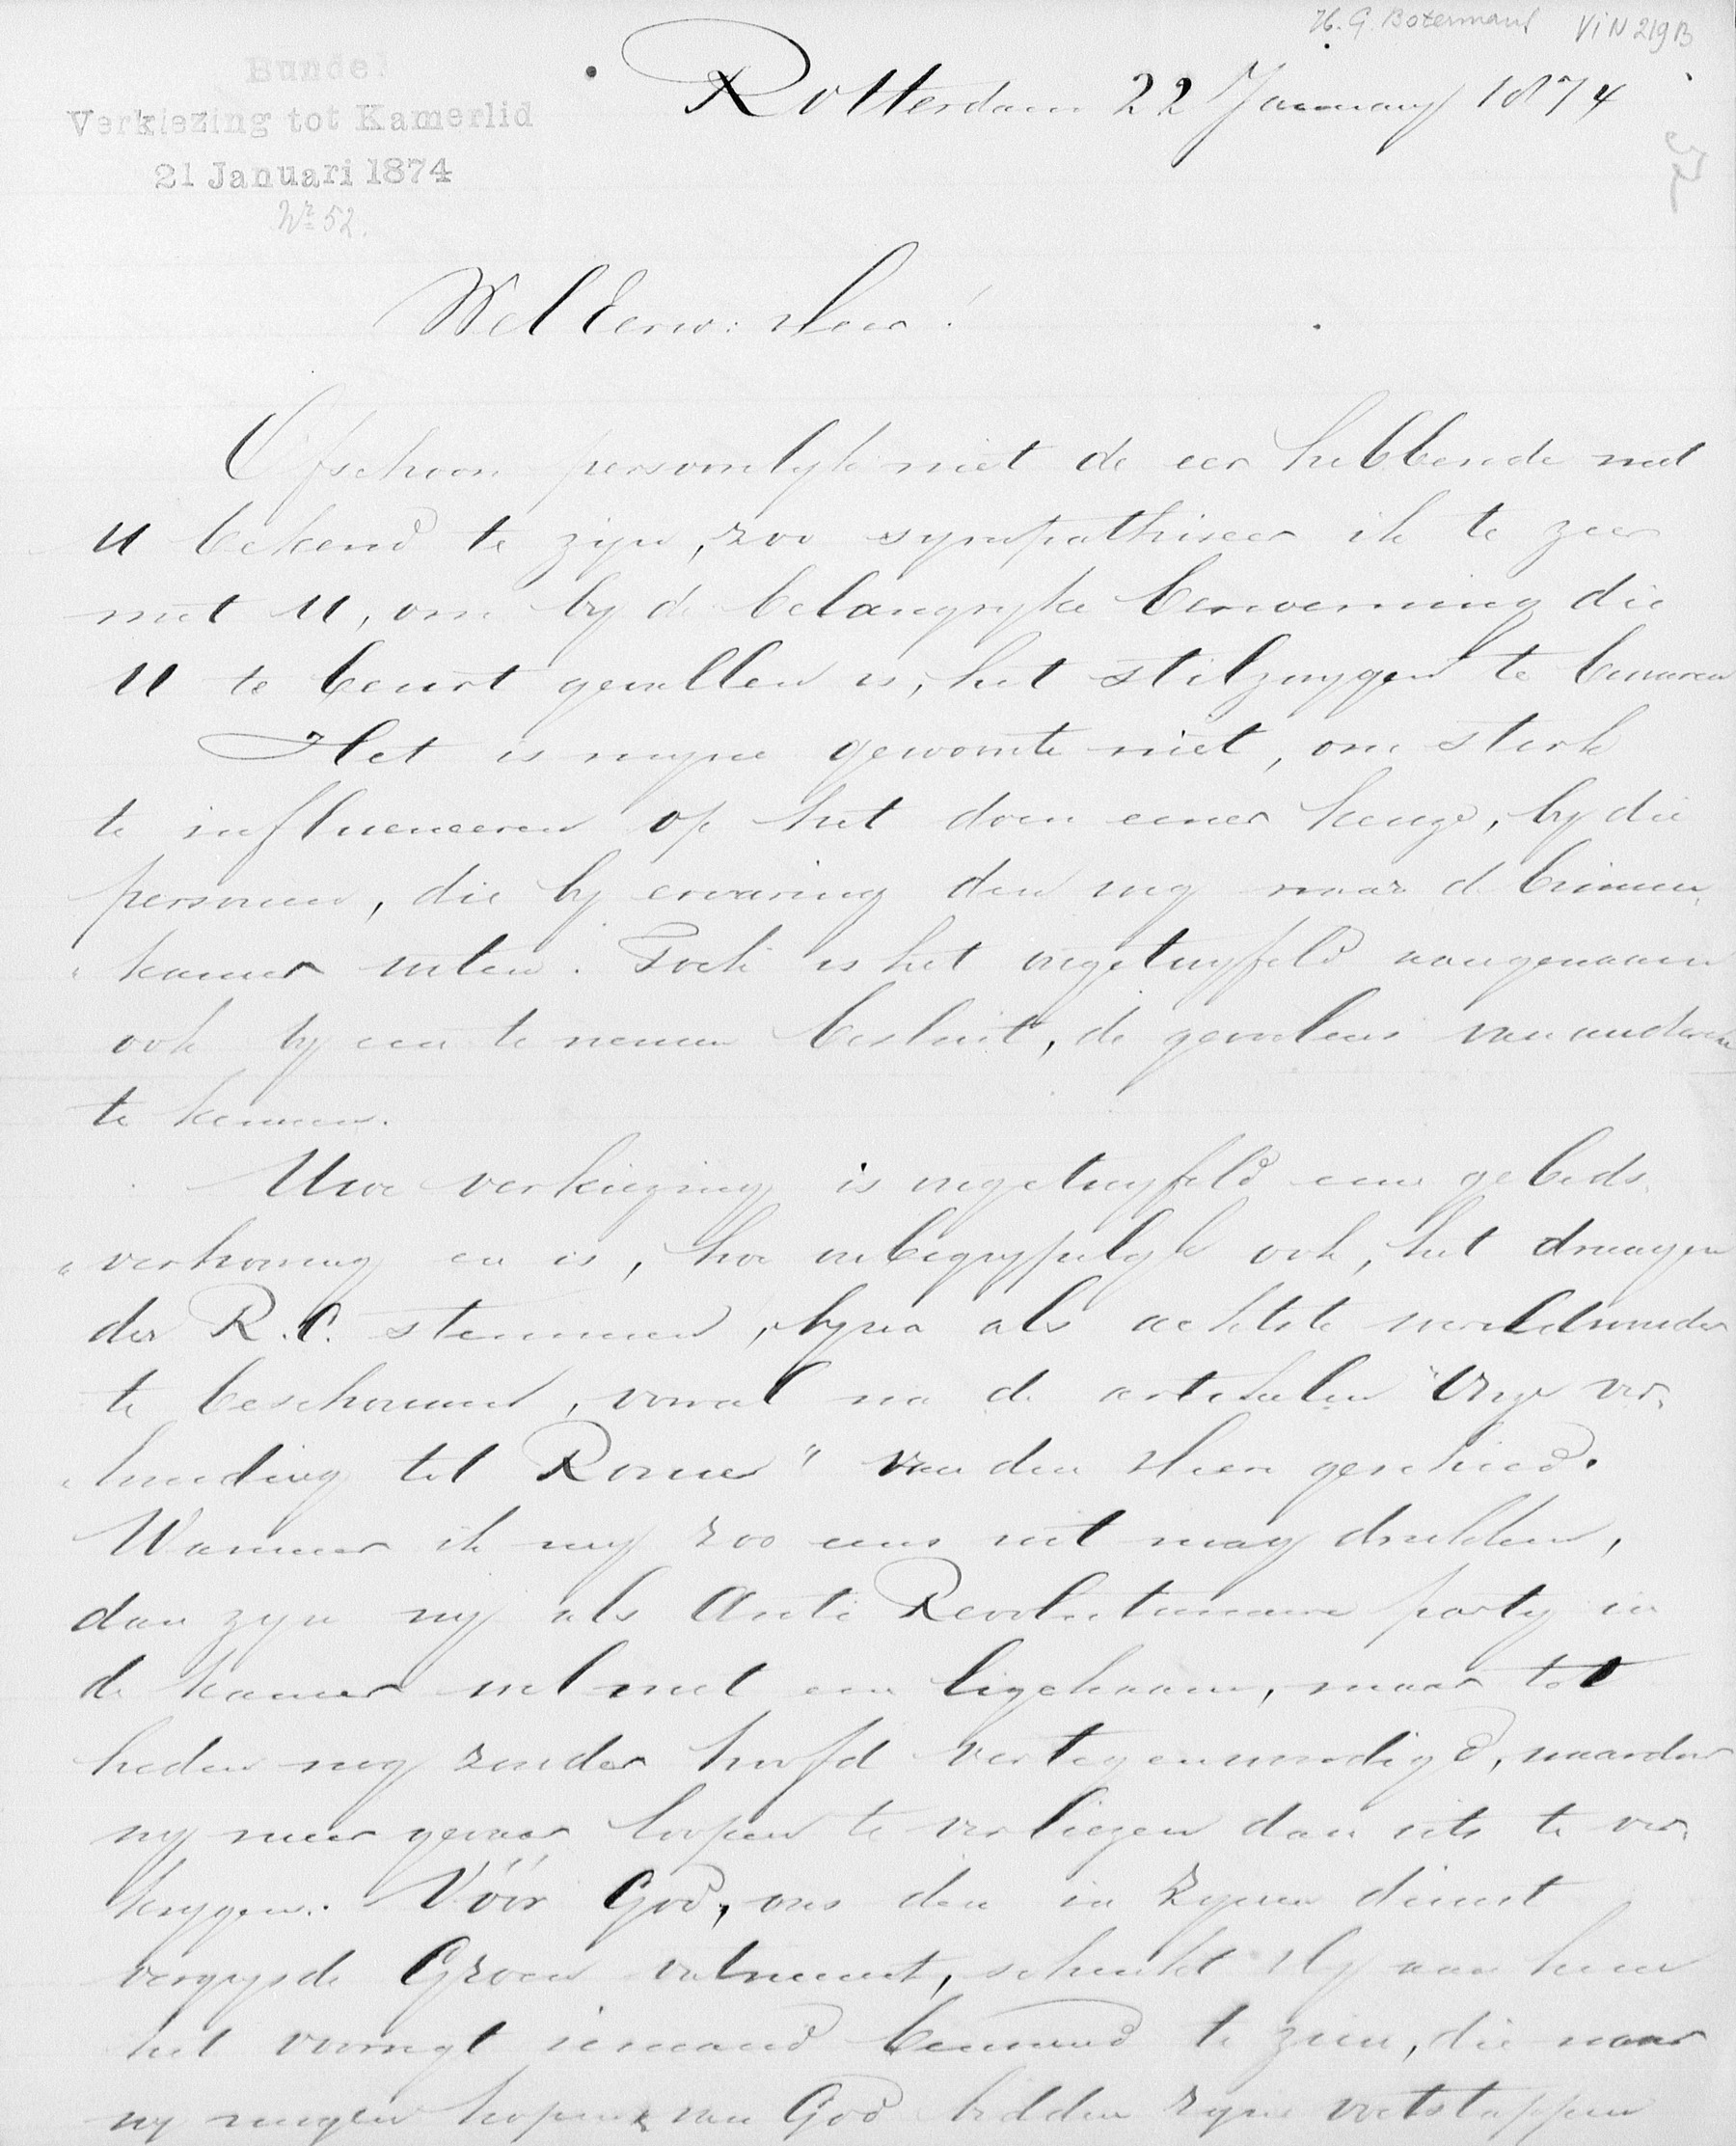 H. G. Botermans VIN 219B
Bundel
Verkiezing tot Kamerlid
21 Januari 1874
Nr 52.
Rotterdam 22 January 1874
Wel Eerw: Heer!
Ofschoon persoonlyk niet de eer hebbende met
U bekend te zyn, zoo sympathiseer ik te zeer
met U, om by de belangryke benoeming die
U te beurt gevallen is, het stilzwygen te bewaren
Het is myne gewoonte niet, om sterk
te influenceeren op het doen eener keuze, by die
personen, die by ervaring den weg naar de binnen
"kamer weten. Toch is het ongetwyfeld aangenaam
ook by een te nemen besluit, de gevoelens van anderen
te kennen.
Uwe verkiezing is ongetwyfeld eene gebeds
"verhooring en is, hoe onbegrypelyk ook, het dragen
der R.C. stemmen, byna als achtste wereldwonder
te beschouwen, vooral na de artikelen "Onze ver
"houding tot Rome" van den Heer geschied.
Wanneer ik my zoo eens uit mag drukken,
dan zyn wy als Anti Revolutionaire party in
de kamer wel met een ligchaam, maar tot
heden nog zonder hoofd vertegenwoordigd, waardoor
wy meer gevaar loopen te verliezen dan iets te ver
krygen. Vóór God, ons den in Zynen dienst
vergrysde Groen ontneemt, schenkt Hy aan hem
het voorregt iemand benoemd te zien, die naar
wy mogen hopen & van God bidden zyne voetstappen